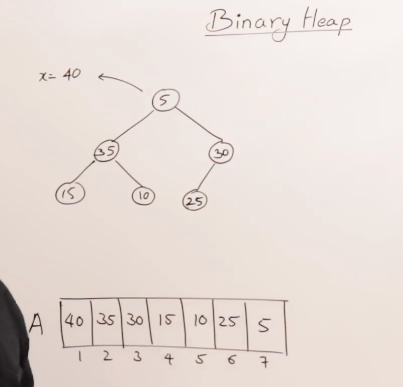 Binary Heap
x= 40
5
35 30
15 10 25
A 40 35 30 15 10 25 5
1 2 3 4 5 6 7